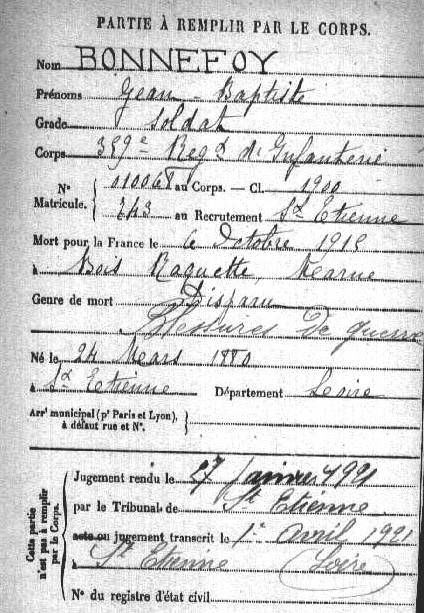 PARTIE À REMPLIR PAR LE CORPS.
Nom BONNEFOY
Prénoms Jean - Baptiste
Grade Soldat
Corps 359e Regt d'Infanterie
N° Matricule. { 010068 au Corps. — Cl. 1900
243 au Recrutement St Etienne
Mort pour la France le 6 Octobre 1915
à Bois Raquette, Marne
Genre de mort Disparu
Blessures de guerre
Né le 24 Mars 1880
à St Etienne Département Loire
Arrt municipal (pr Paris et Lyon), à défaut rue et N°. }
Cette partie n'est pas à remplir par le Corps.
Jugement rendu le 27 Janvier 1921
par le Tribunal de St Etienne
acte ou jugement transcrit le 1er Avril 1921
à St Etienne (Loire)
N° du registre d'état civil